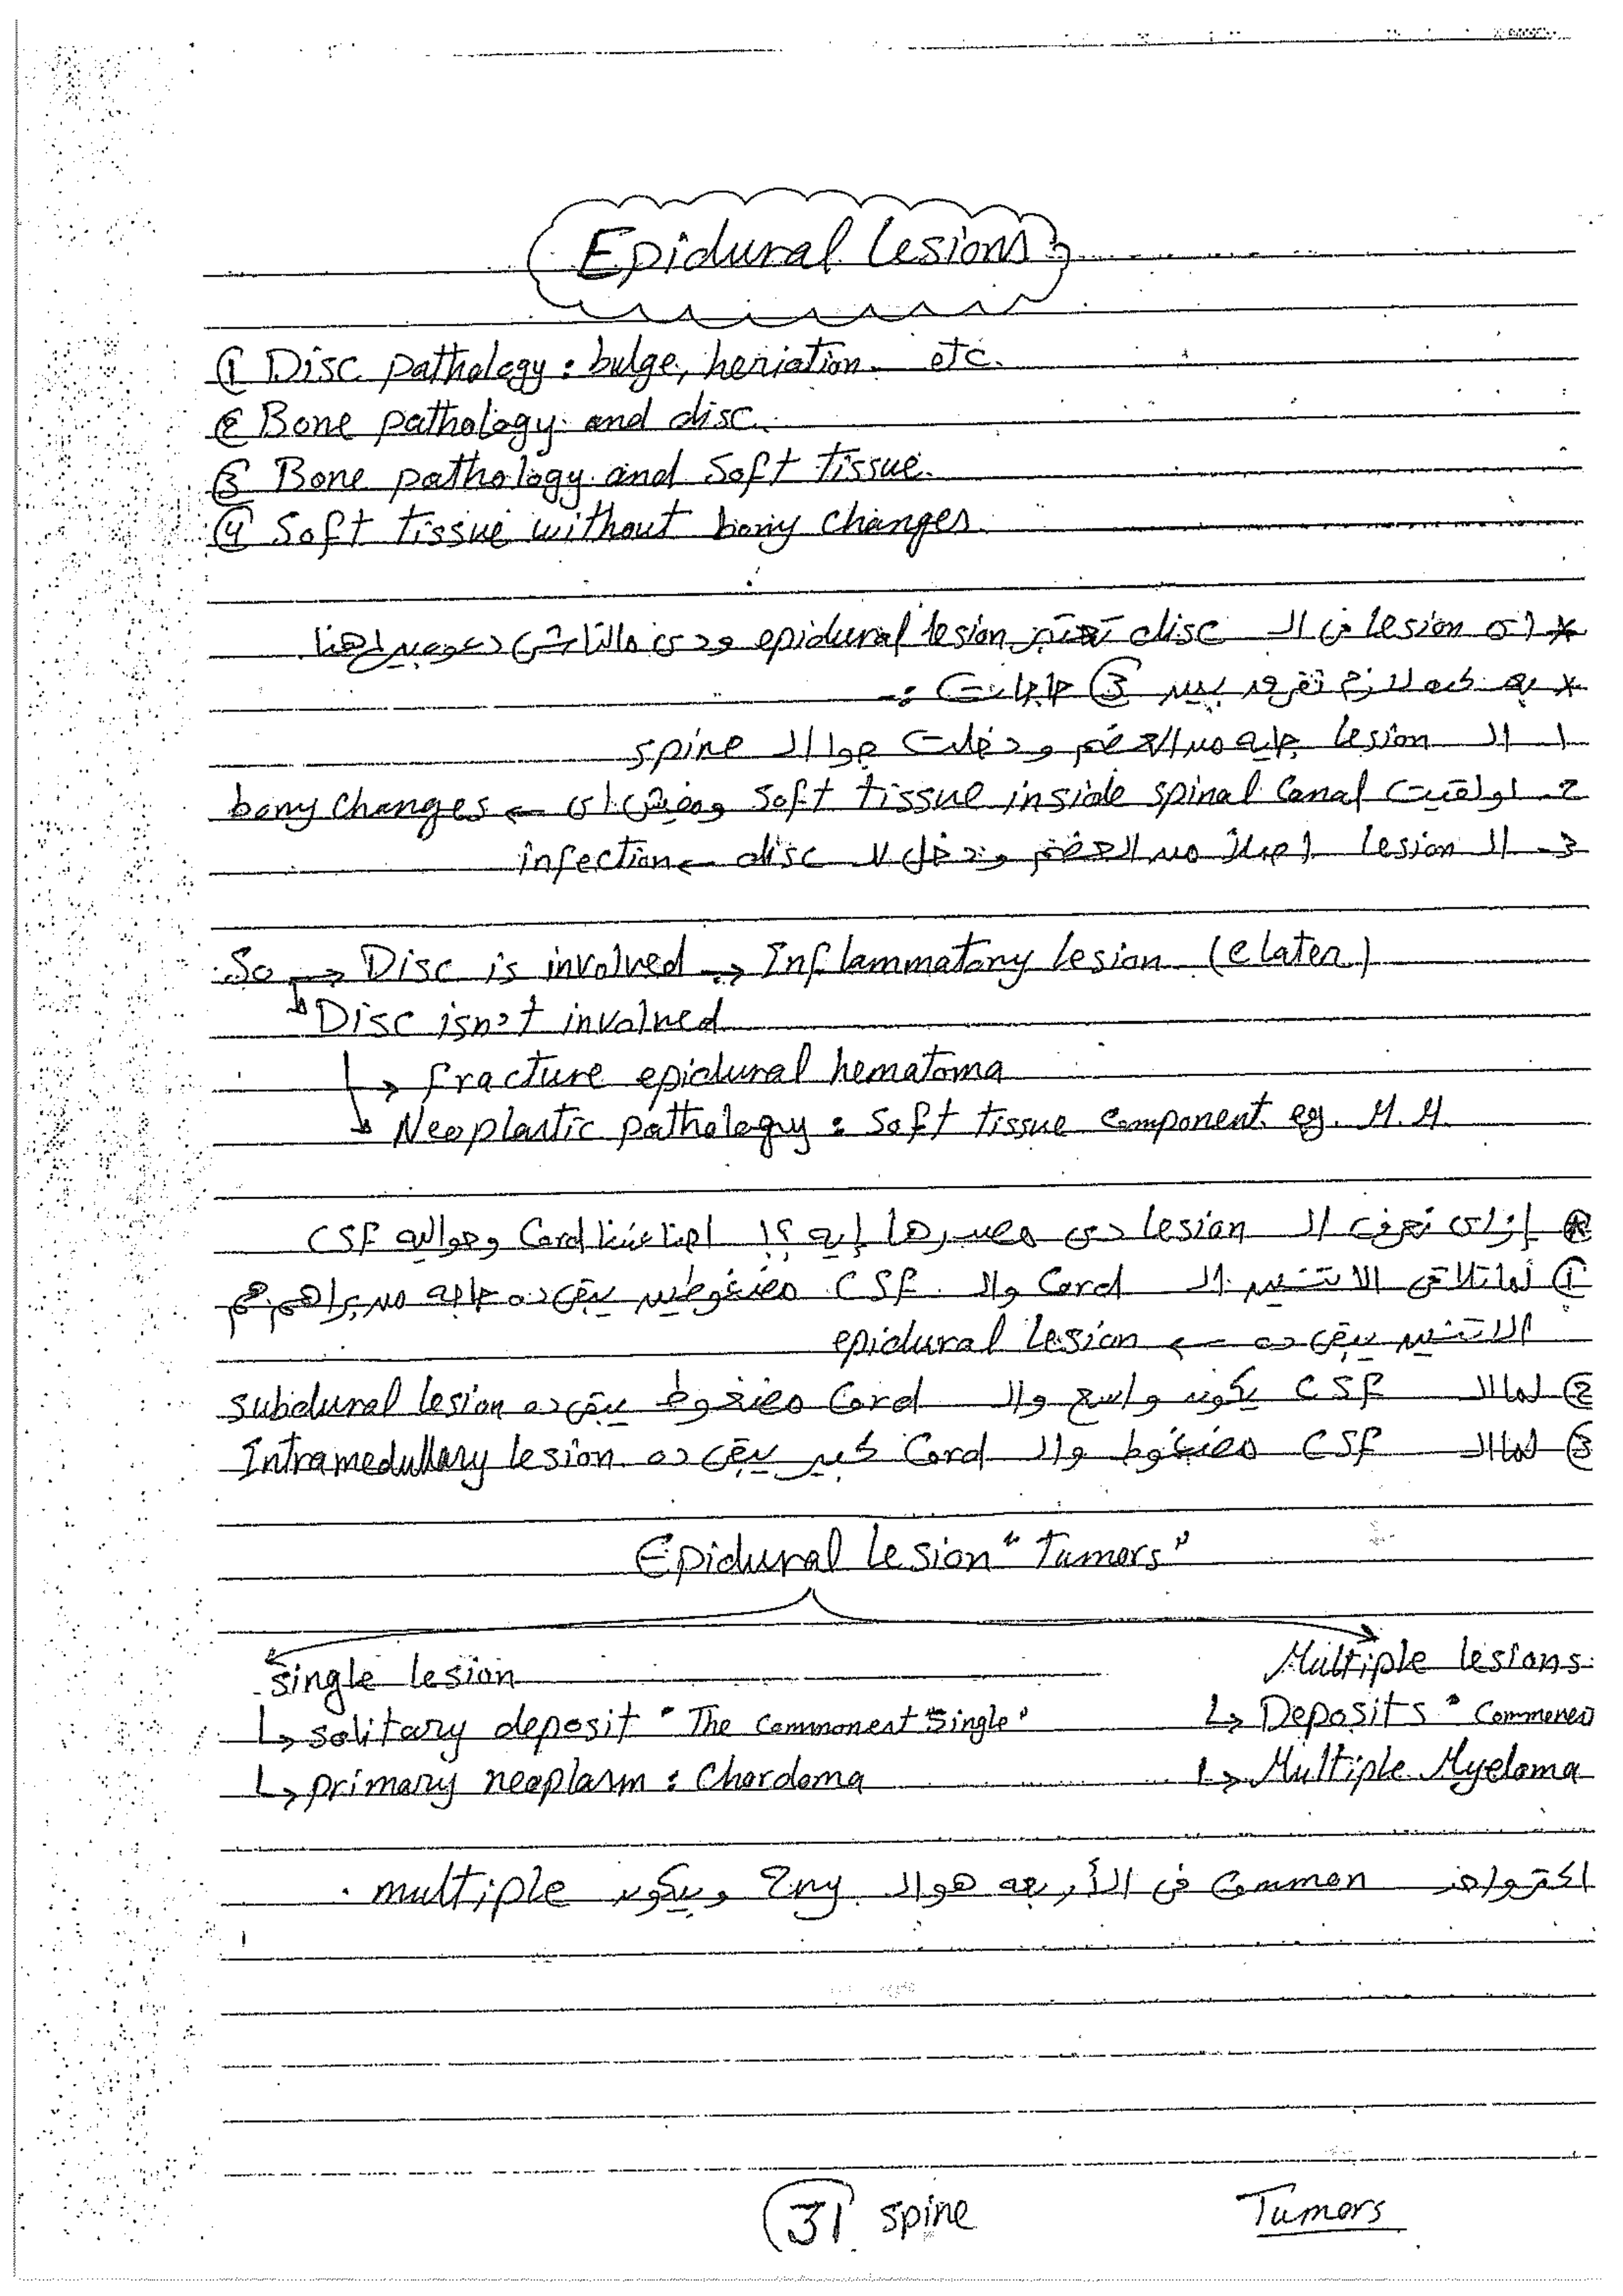 Epidural Lesions
① Disc pathology : bulge, herniation. etc.
② Bone pathology and disc.
③ Bone pathology and Soft tissue.
④ Soft tissue without bony changes.
* أى lesion فى الـ disc تعتبر epidural lesion ودى مالناش دعوه بيها هنا
* يبقى كده لازم نفرق بين ③ حاجات :-
1. الـ lesion جايه من العضم ودخلت جوا الـ spine
2. لو لقيت soft tissue inside spinal Canal ومفيش أى ← bony changes
3. الـ lesion أصلاً من العضم وتدخل لا disc ← infection
So → Disc is involved → Inflammatory Lesion (e later)
↳ Disc isn't involved
↳ fracture epidural hematoma
↳ Neoplastic pathology : Soft tissue component. eg. M.M.
* إزاى نعرف الـ lesion دى مصدرها إيه ؟! احنا عندنا Cord وحواليه CSF
① لما نلاقى الاتنين الـ Cord والـ CSF مضغوطين يبقى ده حاجه من براهم هم
الاتنين يبقى ده ← epidural lesion
② لما الـ CSF يكون واسع والـ Cord مضغوط يبقى ده subdural lesion
③ لما الـ CSF مضغوط والـ Cord كبير يبقى ده Intramedullary lesion
Epidural lesion "Tumors"
single lesion
↳ solitary deposit "The commonest "Single"
↳ primary neoplasm : Chordoma
Multiple lesions
↳ Deposits "Commenes
↳ Multiple Myeloma
اكتر واحد Common فى الأربعه هو الـ 2ny وبيكون multiple .
31 spine
Tumors